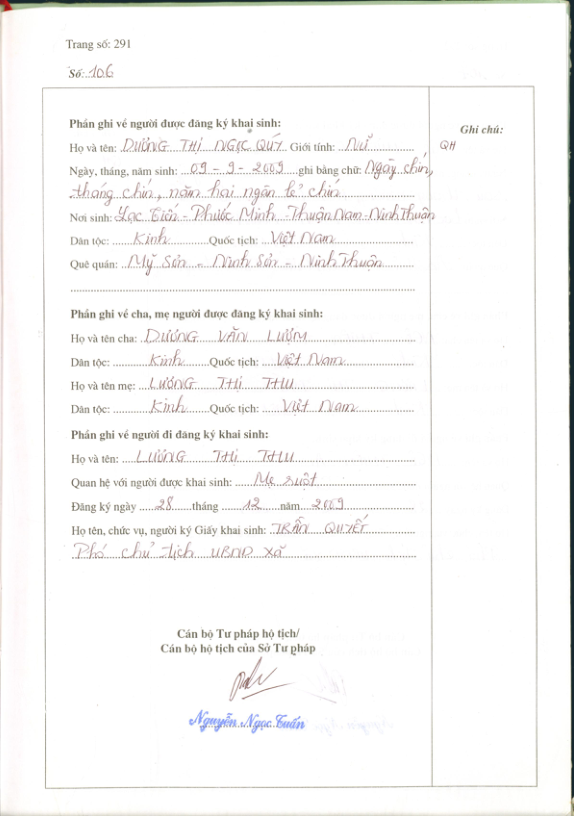 Trang số: 291
Số: 106
Phần ghi về người được đăng ký khai sinh:
Ghi chú:
Họ và tên: DƯƠNG THỊ NGỌC QUÝ Giới tính: NỮ
QH
Ngày, tháng, năm sinh: 09 - 9 - 2009 ghi bằng chữ: Ngày chín,
tháng chín, năm hai ngàn lẻ chín
Nơi sinh: Lạc Tiến - Phước Minh - Thuận Nam - Ninh Thuận
Dân tộc: Kinh Quốc tịch: Việt Nam
Quê quán: Mỹ Sơn - Ninh Sơn - Ninh Thuận
Phần ghi về cha, mẹ người được đăng ký khai sinh:
Họ và tên cha: DƯƠNG VĂN LƯỢM
Dân tộc: Kinh Quốc tịch: Việt Nam
Họ và tên mẹ: LƯƠNG THỊ THU
Dân tộc: Kinh Quốc tịch: Việt Nam
Phần ghi về người đi đăng ký khai sinh:
Họ và tên: LƯƠNG THỊ THU
Quan hệ với người được khai sinh: Mẹ ruột
Đăng ký ngày 28 tháng 12 năm 2009
Họ tên, chức vụ, người ký Giấy khai sinh: TRẦN QUYẾT
Phó chủ tịch UBND xã
Cán bộ Tư pháp hộ tịch/
Cán bộ hộ tịch của Sở Tư pháp
Nguyễn Ngọc Tuấn